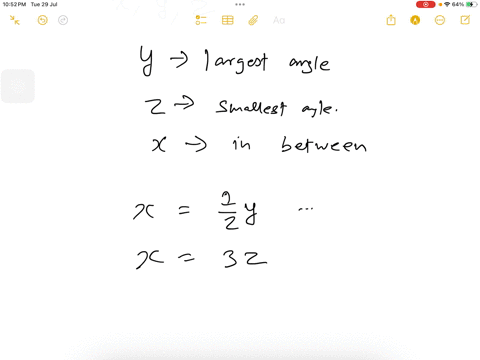 10:52 PM Tue 29 Jul
64%
Aa
y → largest angle
z → smallest agle.
x → in between
x = 1/2 y ...
x = 3z